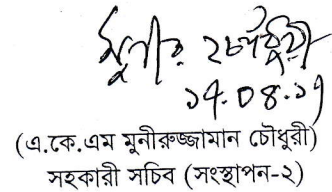 মুনীর চৌধুরী
১৭.০৪.১৭
(এ.কে.এম মুনীরুজ্জামান চৌধুরী)
সহকারী সচিব (সংস্থাপন-২)